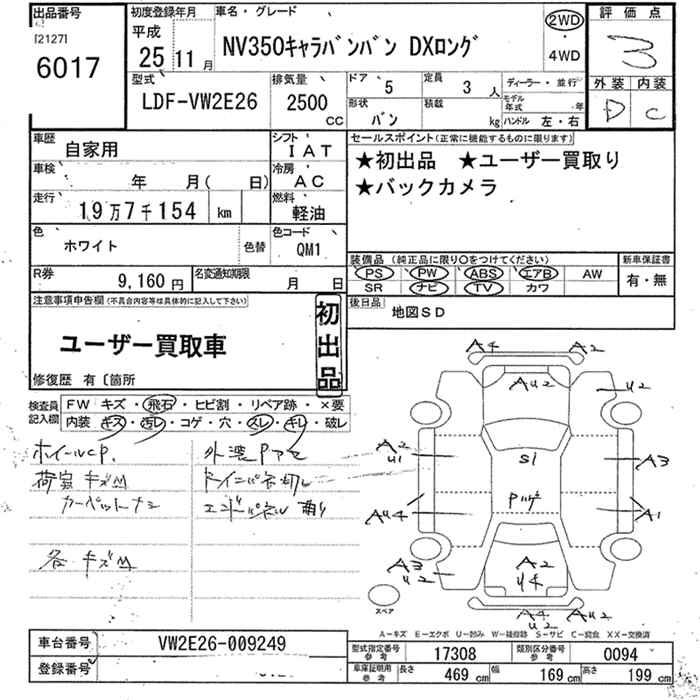 出品番号
[2127]
6017
初度登録年月
平成
25 11月
車名・グレード
NV350キャラバンバン DXロング
2WD
・
4WD
評価点
3
外装 内装
D C
型式
LDF-VW2E26
排気量
2500
CC
ドア 5
定員 3 人
ディーラー・並行
形状 バン
積載 kg
モデル年式 年
ハンドル 左・右
車歴 自家用
シフト IAT
車検 年 月( 日)
冷房 AC
走行 19万7千154 km
燃料 軽油
色 ホワイト 色替
色コード QM1
R券 9,160円
名変通知期限 月 日
セールスポイント(正常に機能するものに限ります)
★初出品 ★ユーザー買取り
★バックカメラ
装備品 (純正品に限り○をつけてください)
PS PW ABS エアB AW
SR ナビ TV カワ
新車保証書
有・無
後日品 地図SD
注意事項申告欄(不具合内容等は具体的に記入して下さい)
ユーザー買取車
初出品
修復歴 有〔箇所
検査員記入欄
FW キズ・飛石・ヒビ割・リペア跡・×要
内装 キズ・汚レ・コゲ・穴・スレ・キレ・破レ
ホイールCP.
荷室 キズM
各 キズM
A4 A2
AU2 U2
A2 U1
S1
A3
AU4
A1
A3 U2
A2 U4
A4 U2 AU2
スペア
A-キズ E-エクボ U-凹み W-補修跡 S-サビ C-腐食 XX-交換済
車台番号 VW2E26-009249
登録番号
型式指定番号参考 17308
類別区分番号参考 0094
車庫証明用参考 長さ 469 cm 幅 169 cm 高さ 199 cm